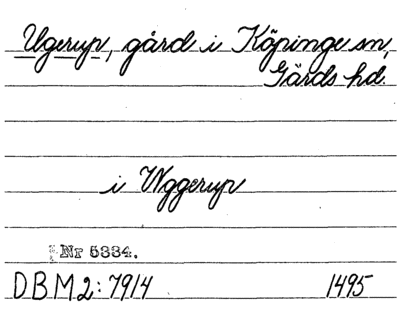 Ugerup, gård i Köpinge sn,
Gärds hd.
i Vggerup
Nr 5334.
DBM2: 7914 1495